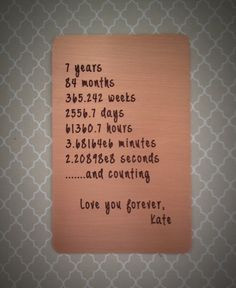 7 years
84 months
365.242 weeks
2556.7 days
61360.7 hours
3.68164e6 minutes
2.20898e8 seconds
.......and counting
Love you forever,
Kate